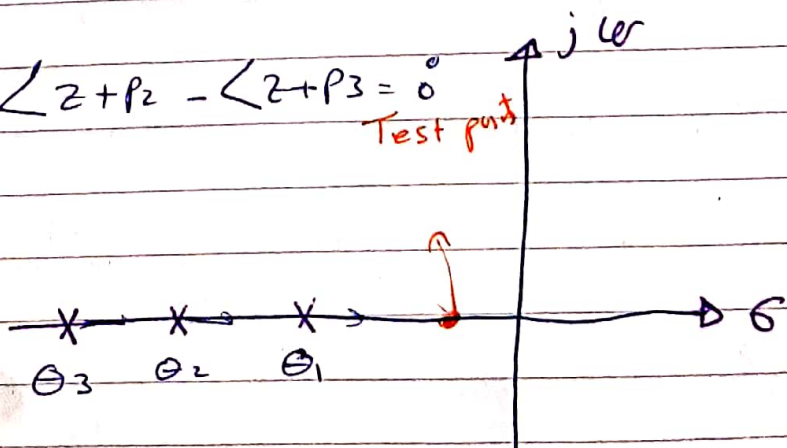 jω
∠z+P2 - ∠z+P3 = 0°
Test point
σ
θ3 θ2 θ1